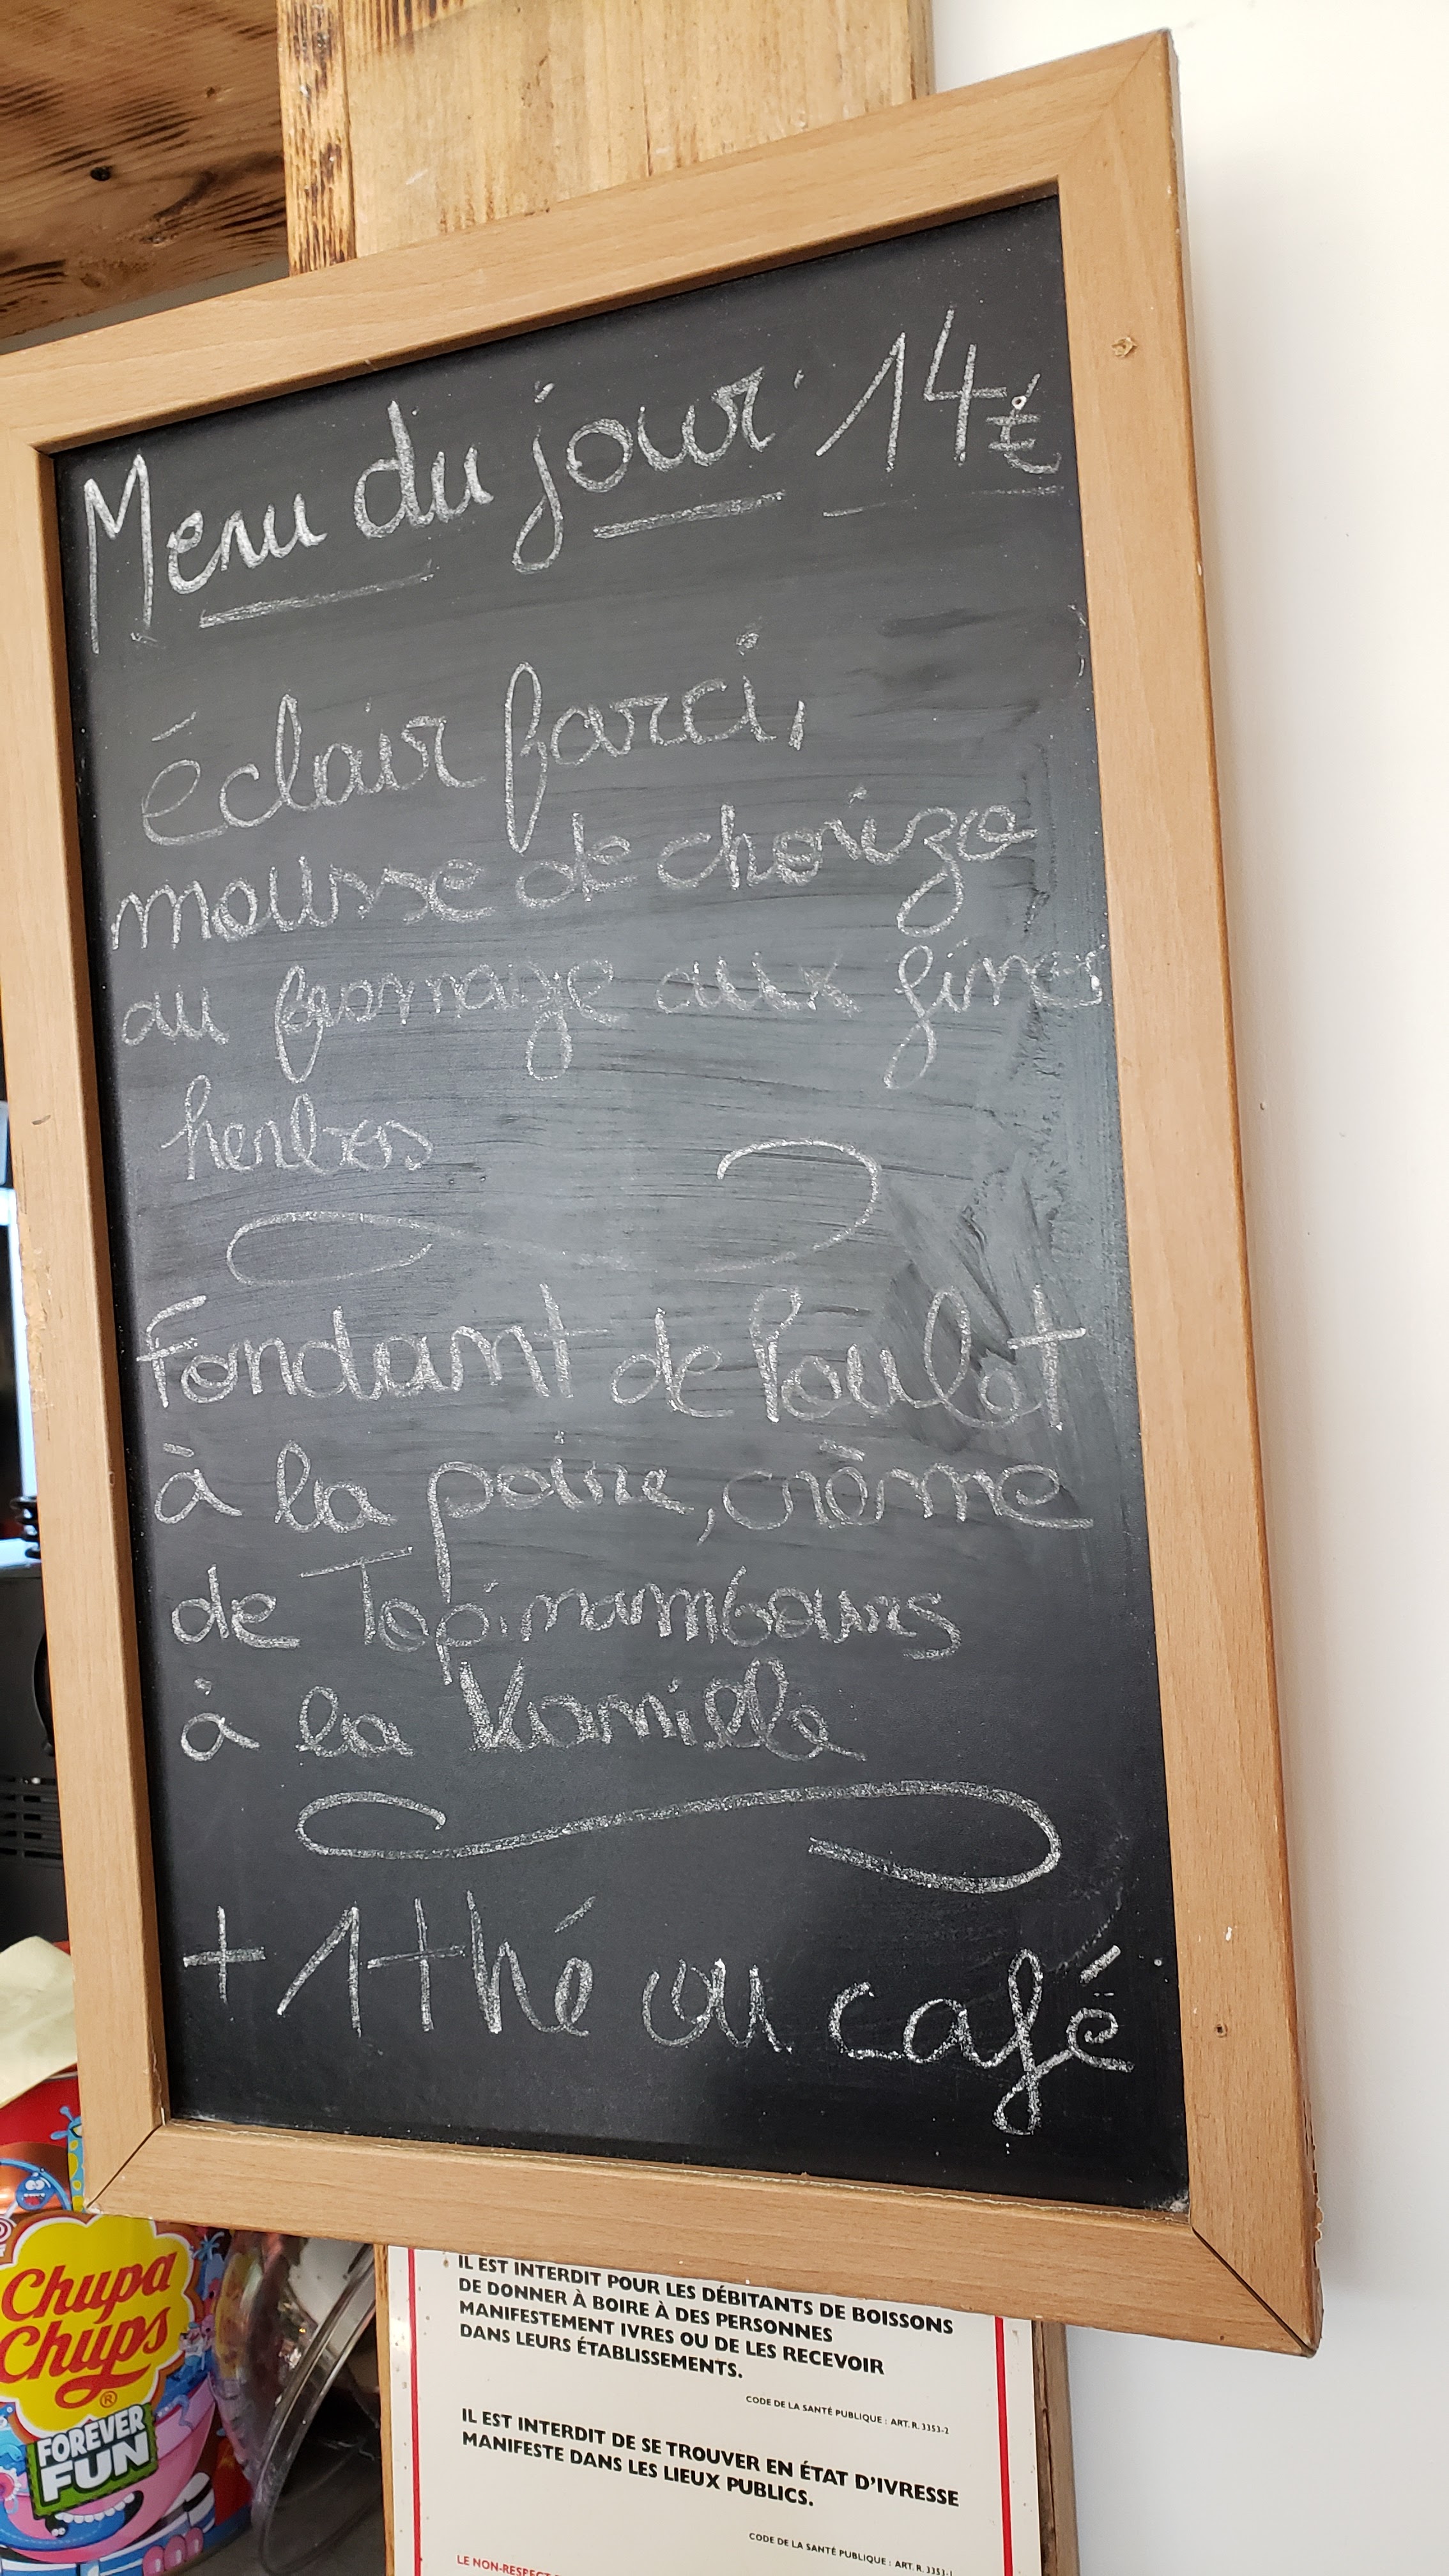 Menu du jour 14€
éclair farci,
mousse de chorizo
au fromage aux fines
herbes
Fondant de Poulet
à la poire, crème
de Topinambours
à la Vanille
+ 1 thé ou café
Chupa
Chups
®
FOREVER
FUN
IL EST INTERDIT POUR LES DÉBITANTS DE BOISSONS
DE DONNER À BOIRE À DES PERSONNES
MANIFESTEMENT IVRES OU DE LES RECEVOIR
DANS LEURS ÉTABLISSEMENTS.
CODE DE LA SANTÉ PUBLIQUE : ART. R. 3353-2
IL EST INTERDIT DE SE TROUVER EN ÉTAT D'IVRESSE
MANIFESTE DANS LES LIEUX PUBLICS.
CODE DE LA SANTÉ PUBLIQUE : ART. R. 3353-1
LE NON-RESPECT